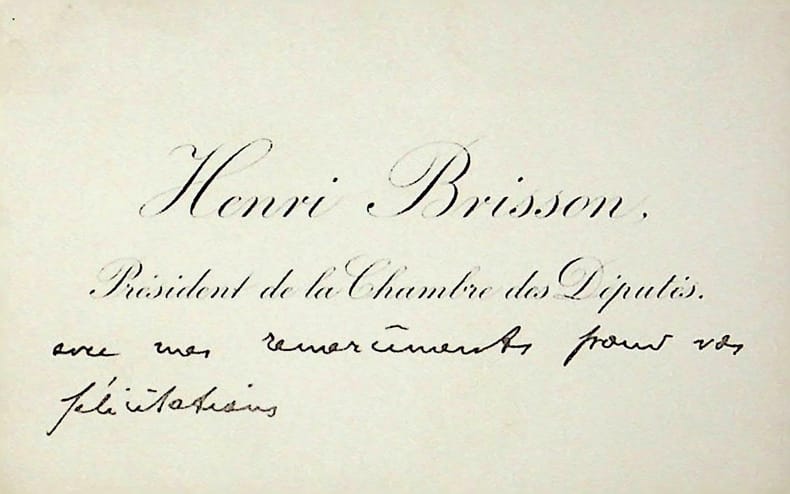 Henri Brisson,
Président de la Chambre des Députés.
avec mes remerciements pour vos
félicitations